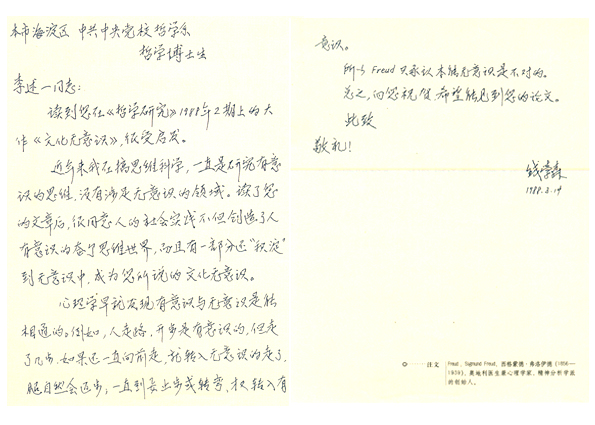 本市海淀区 中共中央党校 哲学系
哲学博士生
李述一同志：
读到您在《哲学研究》1988年2期上的大
作《文化无意识》，很受启发。
近年来我在搞思维科学，一直是研究有意
识的思维，没有涉足无意识的领域。读了您
的文章后，很同意人的社会实践不但创造了人
有意识的奋了思维世界，而且有一部分还“积淀”
到无意识中，成为您所说的文化无意识。
心理学早就发现有意识与无意识是能
相通的。例如，人走路，开步是有意识的，但走
了几步，如果还一直向前走，就转入无意识的走了，
腿自然会迈步；一直到要止步或转弯，才又转入有
意识。
所以 Freud 只承认本能无意识是不对的。
总之，向您祝贺，希望能见到您的论文。
此致
敬礼！
钱学森
1988.3.14
注文
Freud，Sigmund Freud，西格蒙德·弗洛伊德（1856—
1939），奥地利医生兼心理学家、精神分析学派
的创始人。